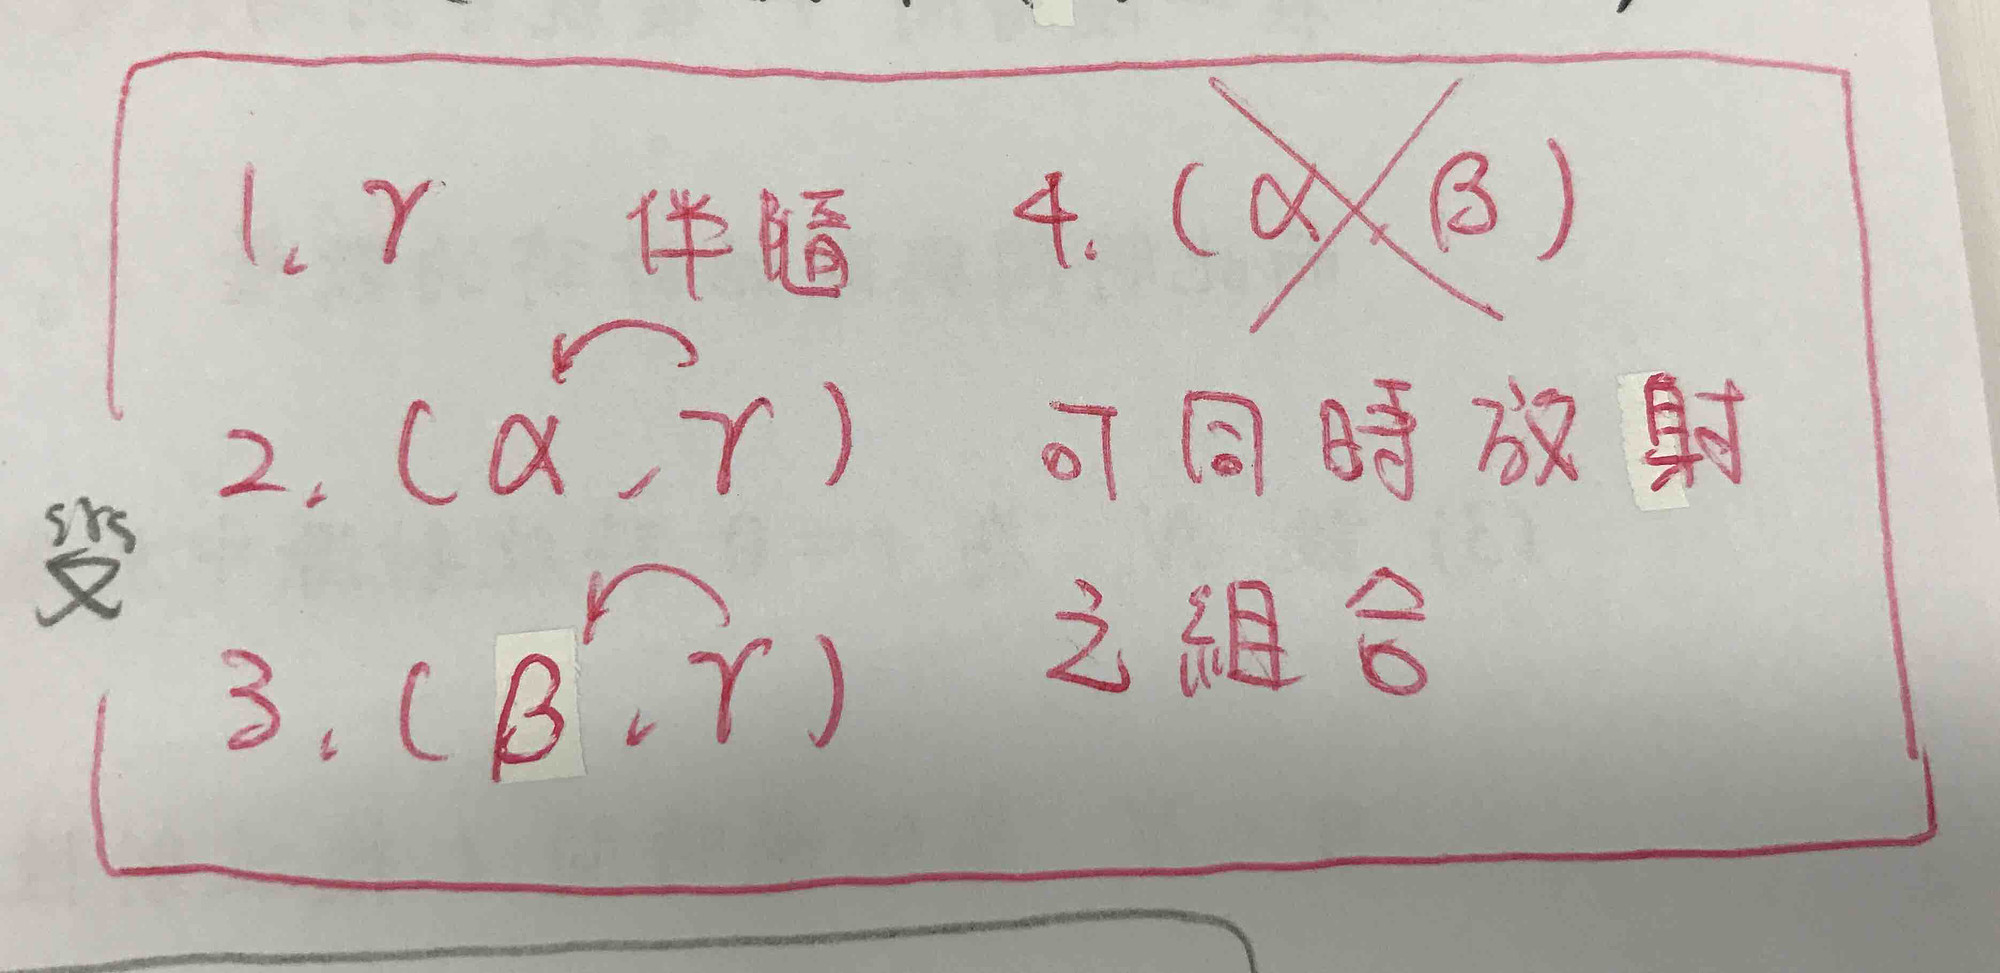 1. γ 伴隨 4. (α β)
2. (α, γ) 可同時放射
3. (β, γ) 之組合